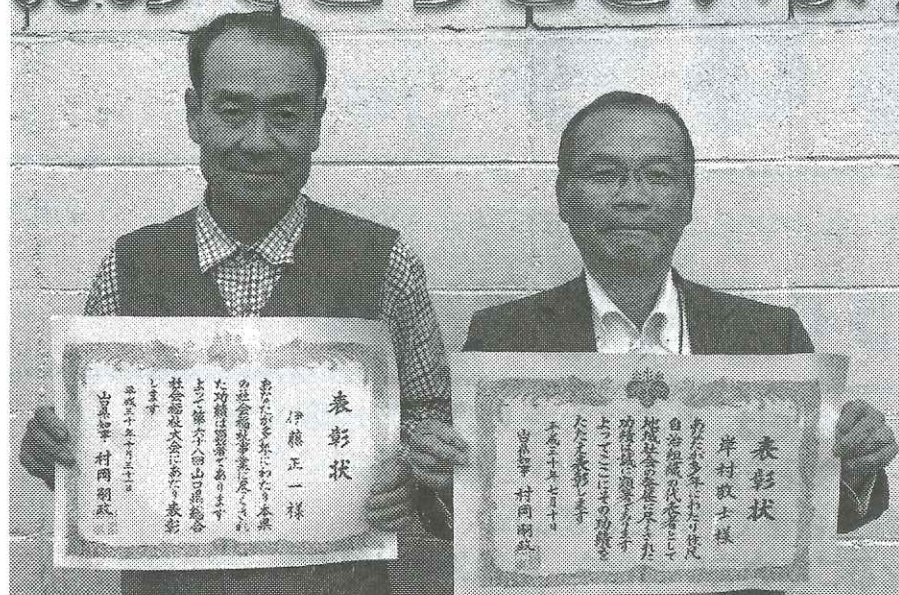 表彰状
伊藤正一様
あなたが多年にわたり本県
の社会福祉事業に尽くされ
た功績は顕著であります
よって第六十八回山口県総合
社会福祉大会にあたり表彰
します
平成三十年十月三十一日
山口県知事 村岡嗣政
表彰状
岸村敬士様
あなたが多年にわたり住民
自治組織の代表者として
地域社会の発展に尽くされた
功績は誠に顕著であります
よってここにその功績を
たたえ表彰します
平成三十年七月十日
山口県知事 村岡嗣政